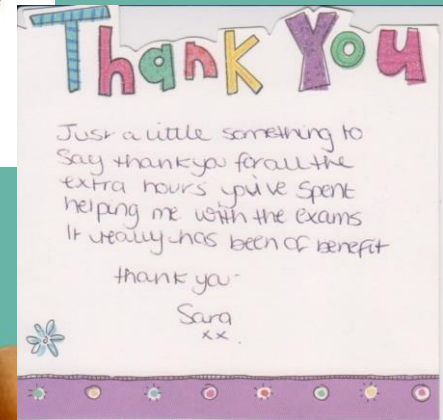 Thank You
Just a little something to
Say thankyou for all the
extra hours you've spent
helping me with the exams
It really has been of benefit
thank you -
Sara
xx.